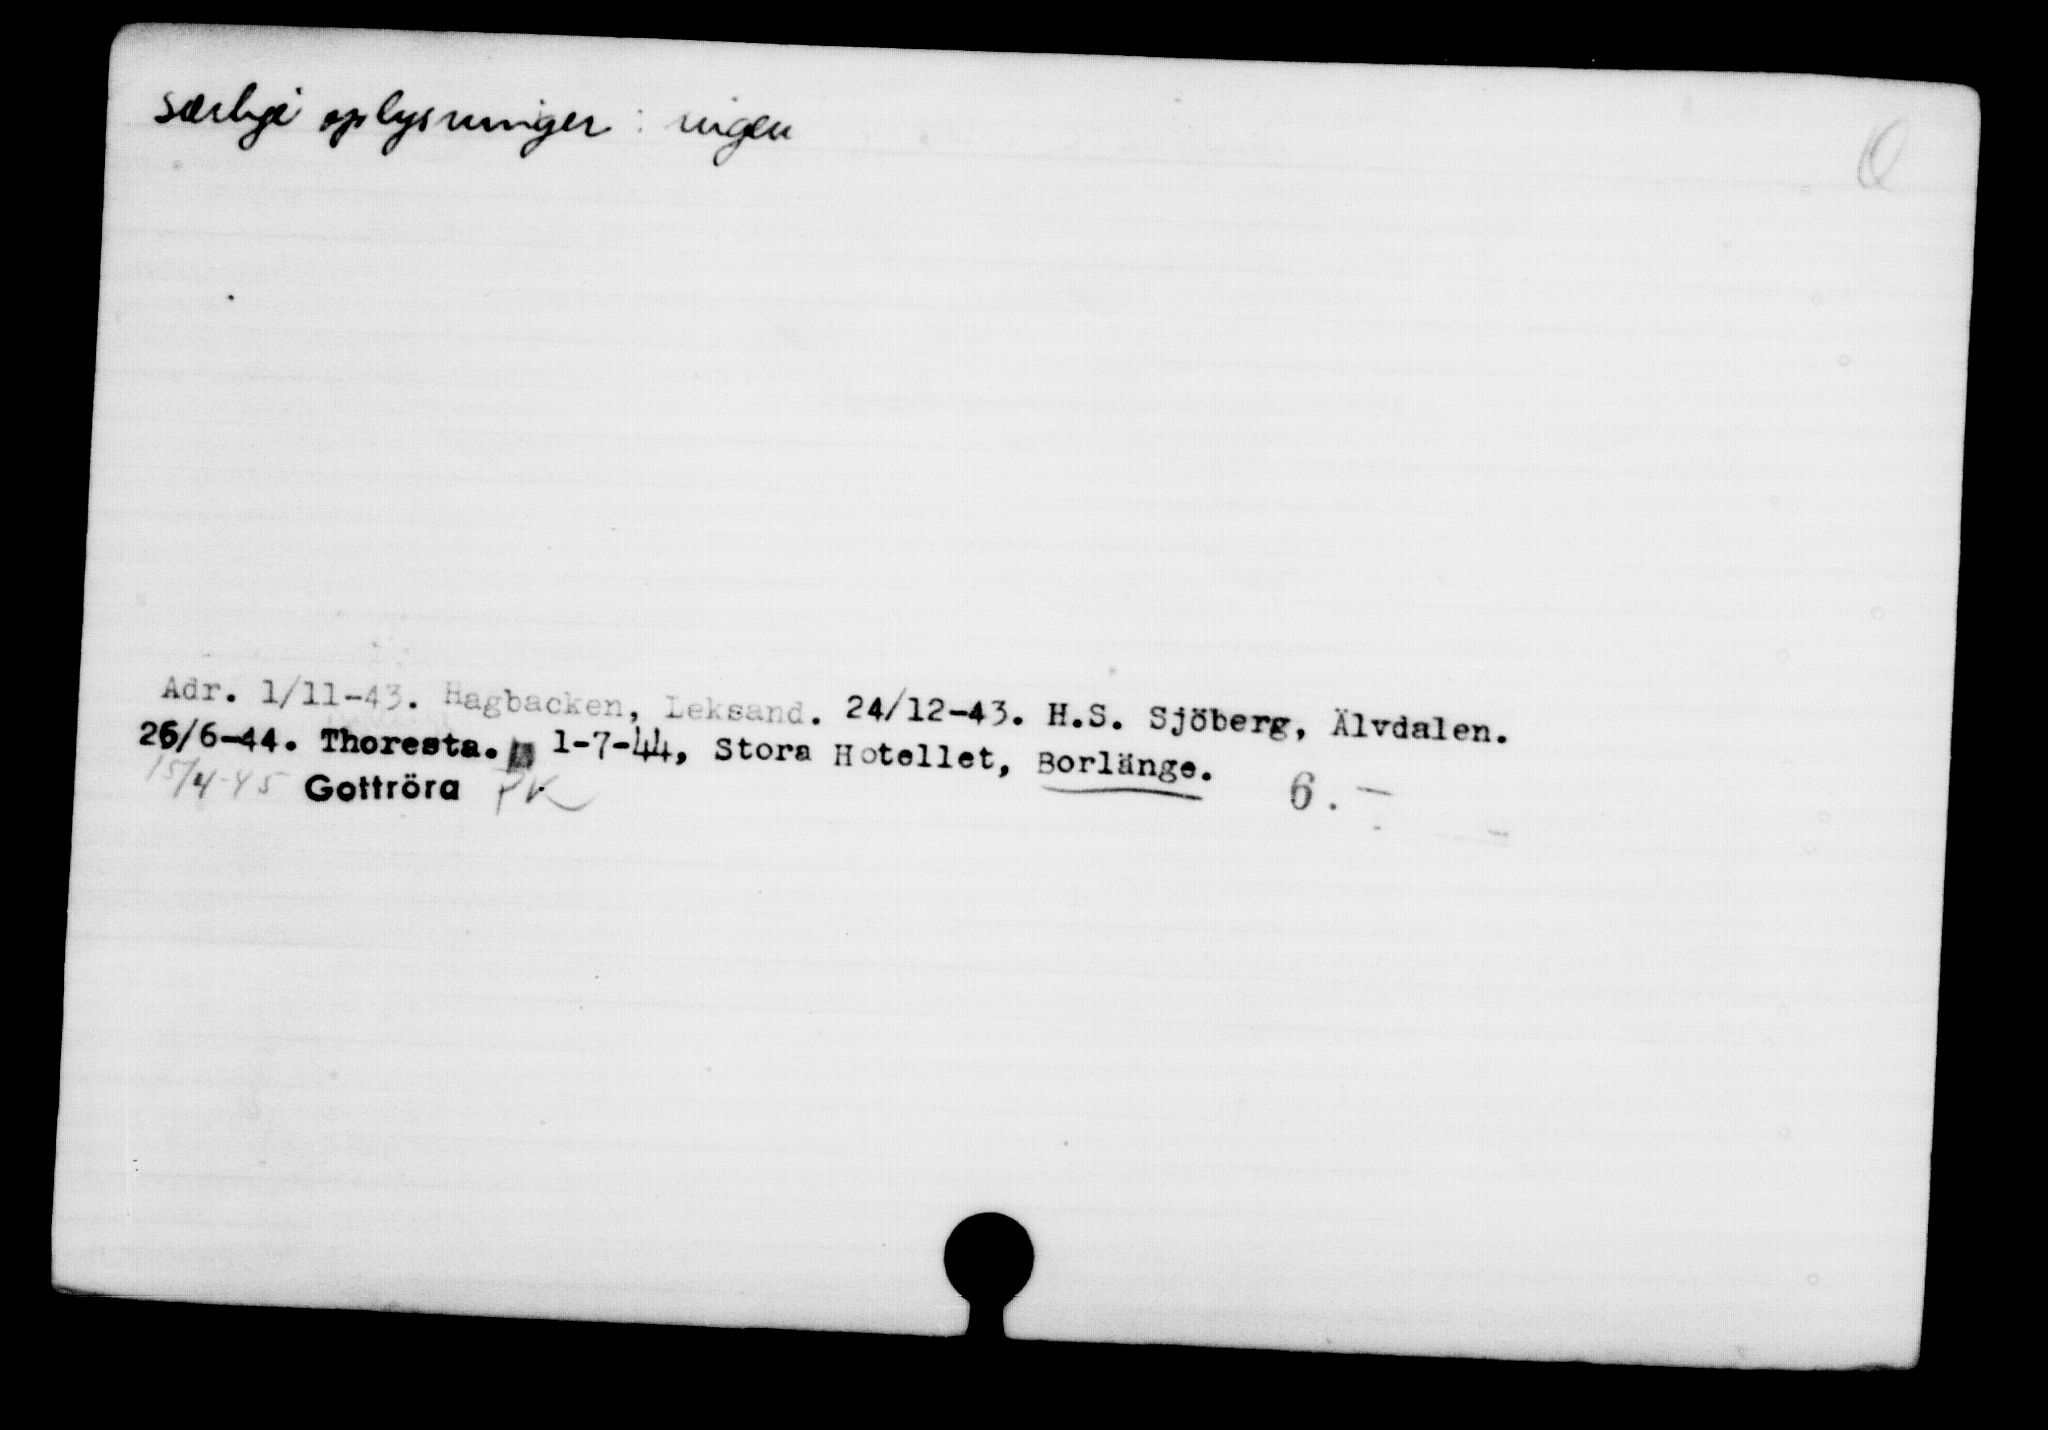 særlige oplysninger : ingen
Adr. 1/11-43. Hagbacken, Leksand. 24/12-43. H.S. Sjöberg, Älvdalen.
26/6-44. Thoresta. 1-7-44, Stora Hotellet, Borlänge.
15/4-45 Gottröra PK 6.-